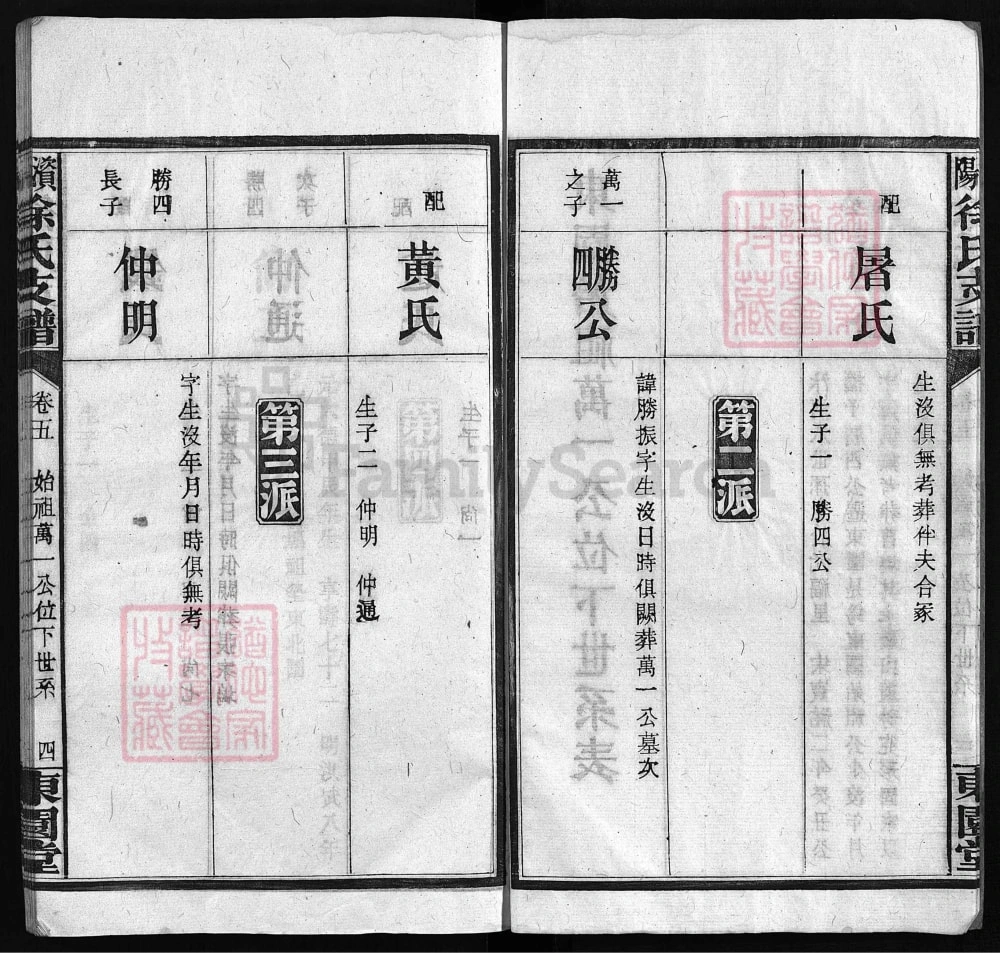 陽徐氏支譜
東園堂
配
屠氏
生沒俱無考葬伴夫合冢
生子一 勝四公
第二派
萬一之子
勝四公
諱勝振字生沒日時俱闕葬萬一公墓次
配
黃氏
生子二 仲明 仲通
第三派
勝四長子
仲明
字生沒年月日時俱無考
濱徐氏支譜
卷五 始祖萬一公位下世系 四
東園堂
FamilySearch